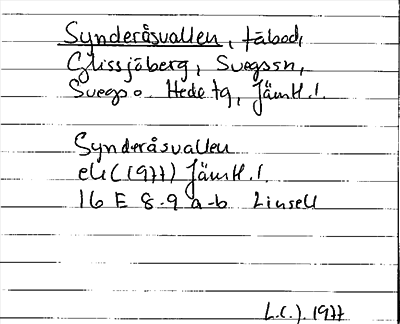 Synderåsvallen, fäbod,
Glissjöberg, Svegssn,
Svegs o. Hede tg, Jämtl.l.
Synderåsvallen
ek (1977) Jämtl.l.
16 E 8-9 a-b Linsell
L.C.J. 1977